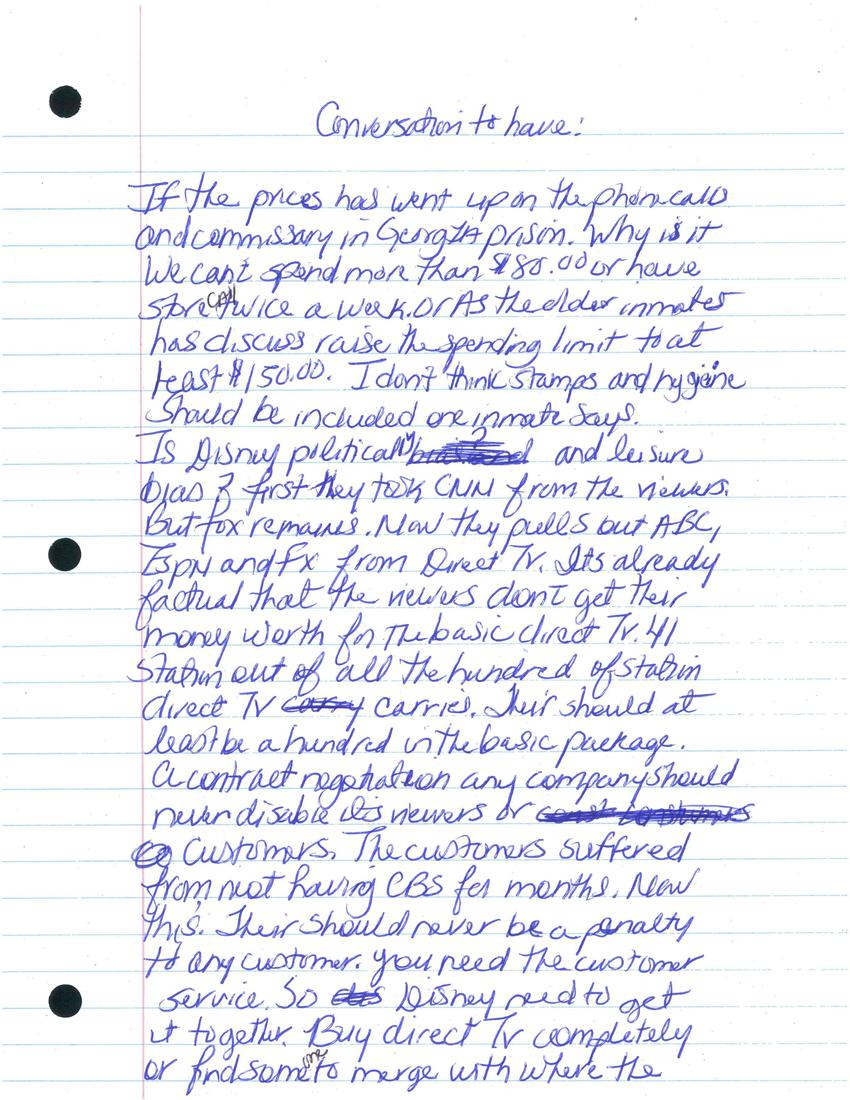 Conversation to have:
If the prices has went up on the phone calls
and commissary in Georgia prison. Why is it
We can't spend more than $80.00 or have
store call twice a week. Or As the older inmates
has discuss raise the spending limit to at
least $150.00. I don't think stamps and hygiene
should be included one inmate says.
Is Disney politically and leisure
bias? first they took CNN from the viewers.
But fox remains. Now they pulls out ABC,
Espn and Fx from Direct Tv. Its already
factual that the viewers don't get their
money worth for the basic direct Tv. 41
station out of all the hundred of station
direct Tv carry carries. Their should at
least be a hundred in the basic package.
A contract negotiation any company should
never disable its viewers or
Customers. The customers suffered
from not having CBS for months. Now
this. Their should never be a penalty
to any customer. you need the customer
service. So Disney need to get
it together. Buy direct Tv completely
or find some one to merge with where the